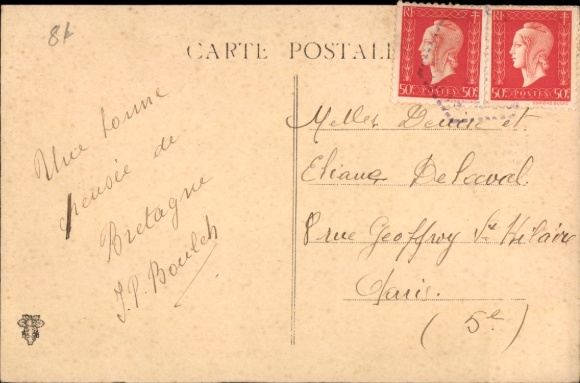 84
CARTE POSTALE
RF
50c POSTES 50c
RF
50c POSTES 50c
Une bonne
pensée de
Bretagne
J.P. Boulch
Melles Denise et
Eliane Delaval
8 rue Geoffroy St Hilaire
Paris.
(5e)